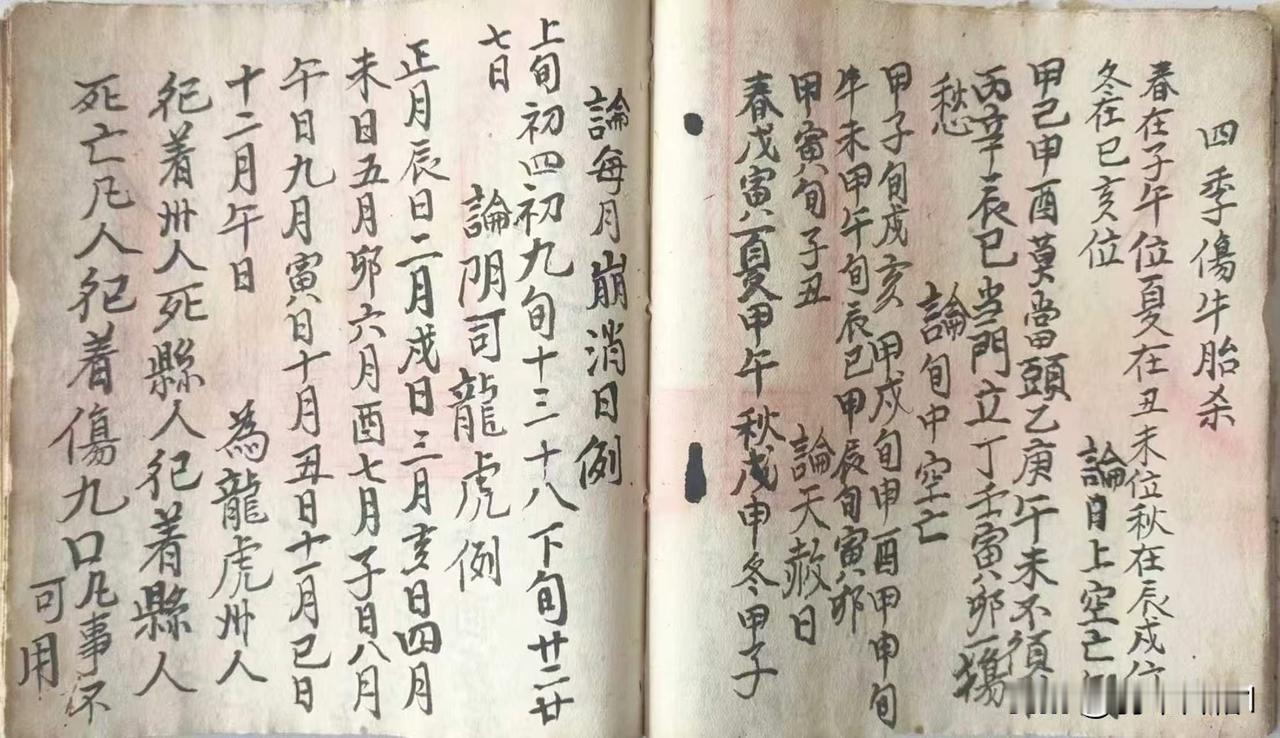 四季傷牛胎杀
春在子午位夏在丑未位秋在辰戍位
冬在巳亥位
論日上空亡
甲己甲酉莫當頭乙庚午未不須
丙辛辰巳当門立丁壬寅卯一場
愁
論旬中空亡
甲子旬戍亥甲戍旬申酉甲申旬
午未甲午旬辰巳甲辰旬寅卯
甲寅旬子丑
論天赦日
春戊寅夏甲午秋戊申冬甲子
論每月崩消日例
上旬初四初九旬十三十八下旬廿二廿
七日
論阴司龍虎例
正月辰日二月戍日三月亥日四月
未日五月卯六月酉七月子日八月
午日九月寅日十月丑日十一月巳日
十二月午日
為龍虎卅人
犯着卅人死縣人犯着縣人
死亡凡人犯着傷九口凡事不
可用